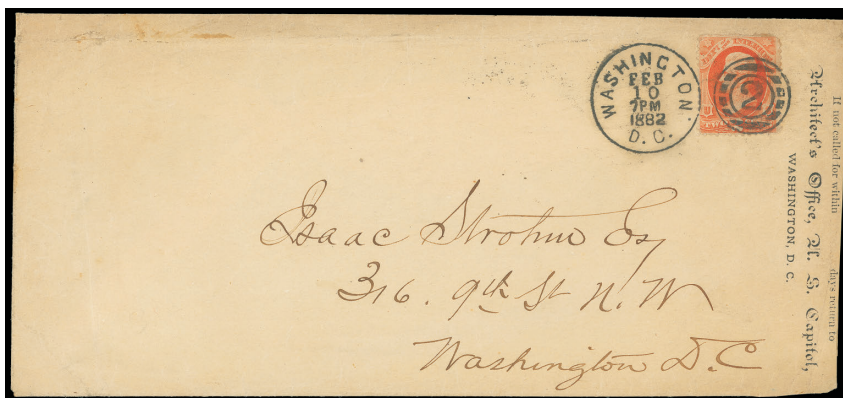 WASHINGTON.
FEB
10
7PM
1882
D. C.
2
If not called for within days return to
Architect's Office, U. S. Capitol,
WASHINGTON, D. C.
Isaac Strohm Esq
316. 9th St N. W
Washington D. C